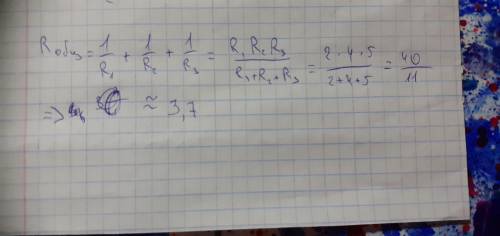 R общ = 1/R₁ + 1/R₂ + 1/R₃ = R₁ R₂ R₃ / R₁+R₂+R₃ = 2·4·5 / 2+4+5 = 40/11
=> ≈ 3,7